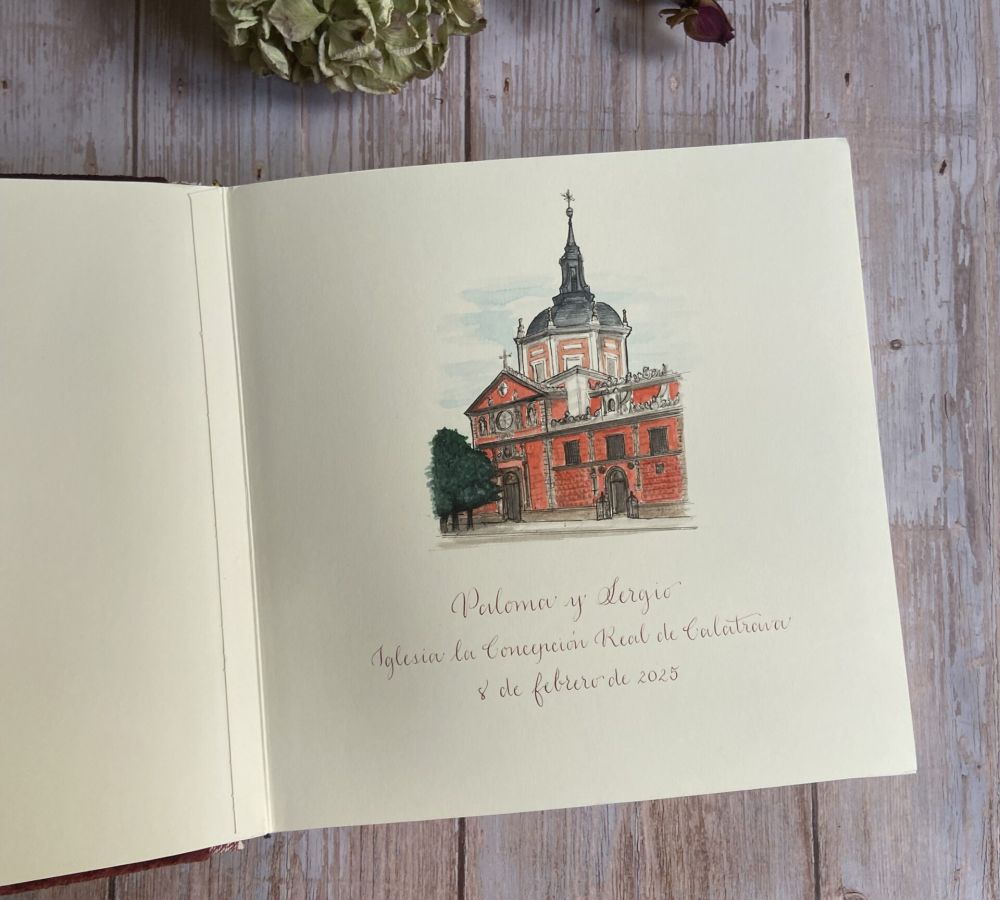 Paloma y Sergio
Iglesia la Concepción Real de Calatrava
8 de febrero de 2025